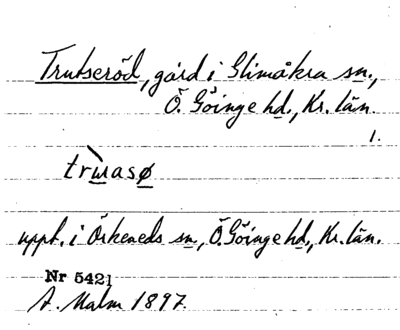 Trutseröd, gård i Glimåkra sn.,
Ö. Göinge hd., Kr. län.
1.
trùasø
uppt. i Örkeneds sn., Ö. Göinge hd., Kr. län.
Nr 5421
A. Malm 1897.